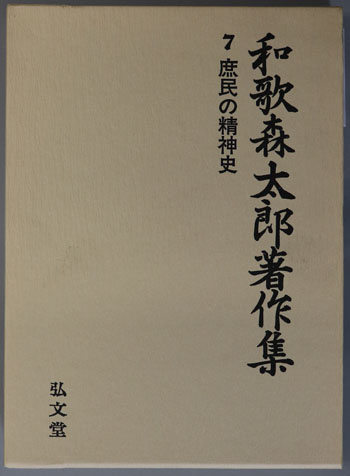 和歌森太郎著作集
7 庶民の精神史
弘文堂